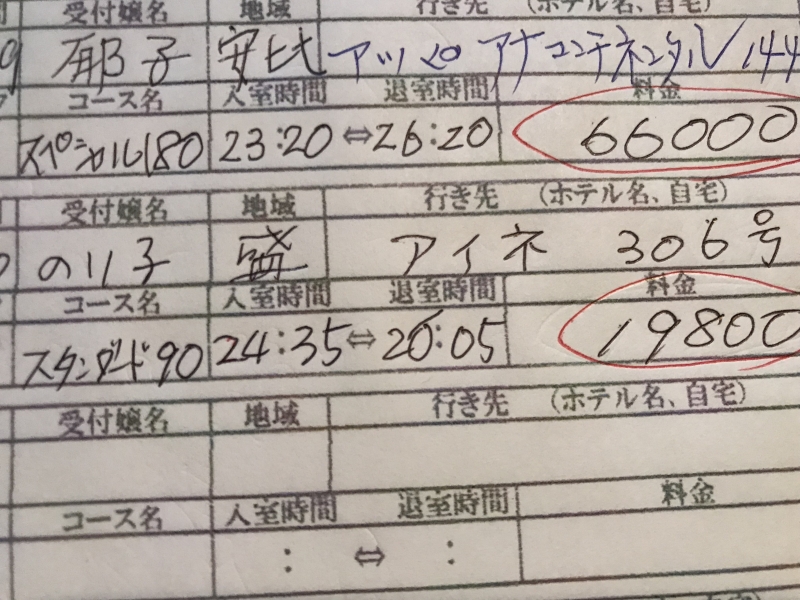 受付嬢名 地域 行き先 (ホテル名、自宅)
郁子 安比 アッパロ アナコンチネンタル 144
コース名 入室時間 退室時間 料金
スペシャル180 23:20 ⇔ 26:20 66000
受付嬢名 地域 行き先 (ホテル名、自宅)
のり子 盛 アイネ 306号
コース名 入室時間 退室時間 料金
スタンダード90 24:35 ⇔ 26:05 19800
受付嬢名 地域 行き先 (ホテル名、自宅)
コース名 入室時間 退室時間 料金
: ⇔ :